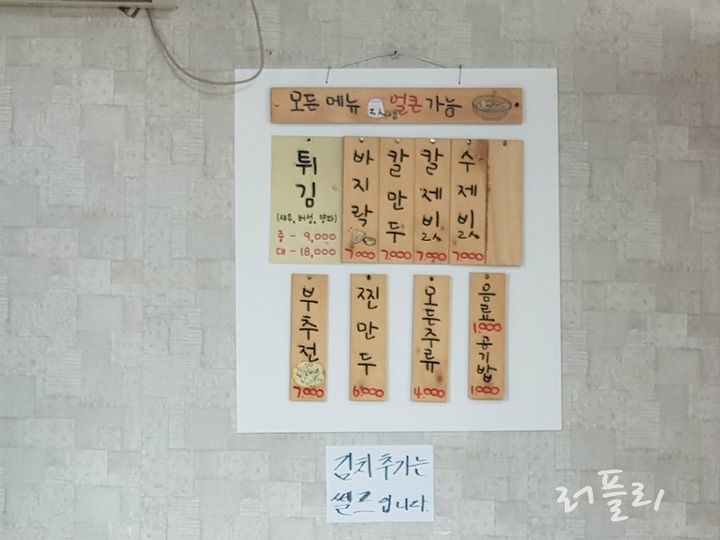 모든 메뉴 얼큰 가능
튀김
(새우, 버섯, 양파)
중 - 9,000
대 - 18,000
바지락
7,000
칼만두
7,000
칼제빗
7,000
수제빗
7,000
부추전
7,000
찐만두
6,000
모든주류
4,000
음료
1,000
공기밥
1,000
김치추가는
쎌프입니다.
러플리